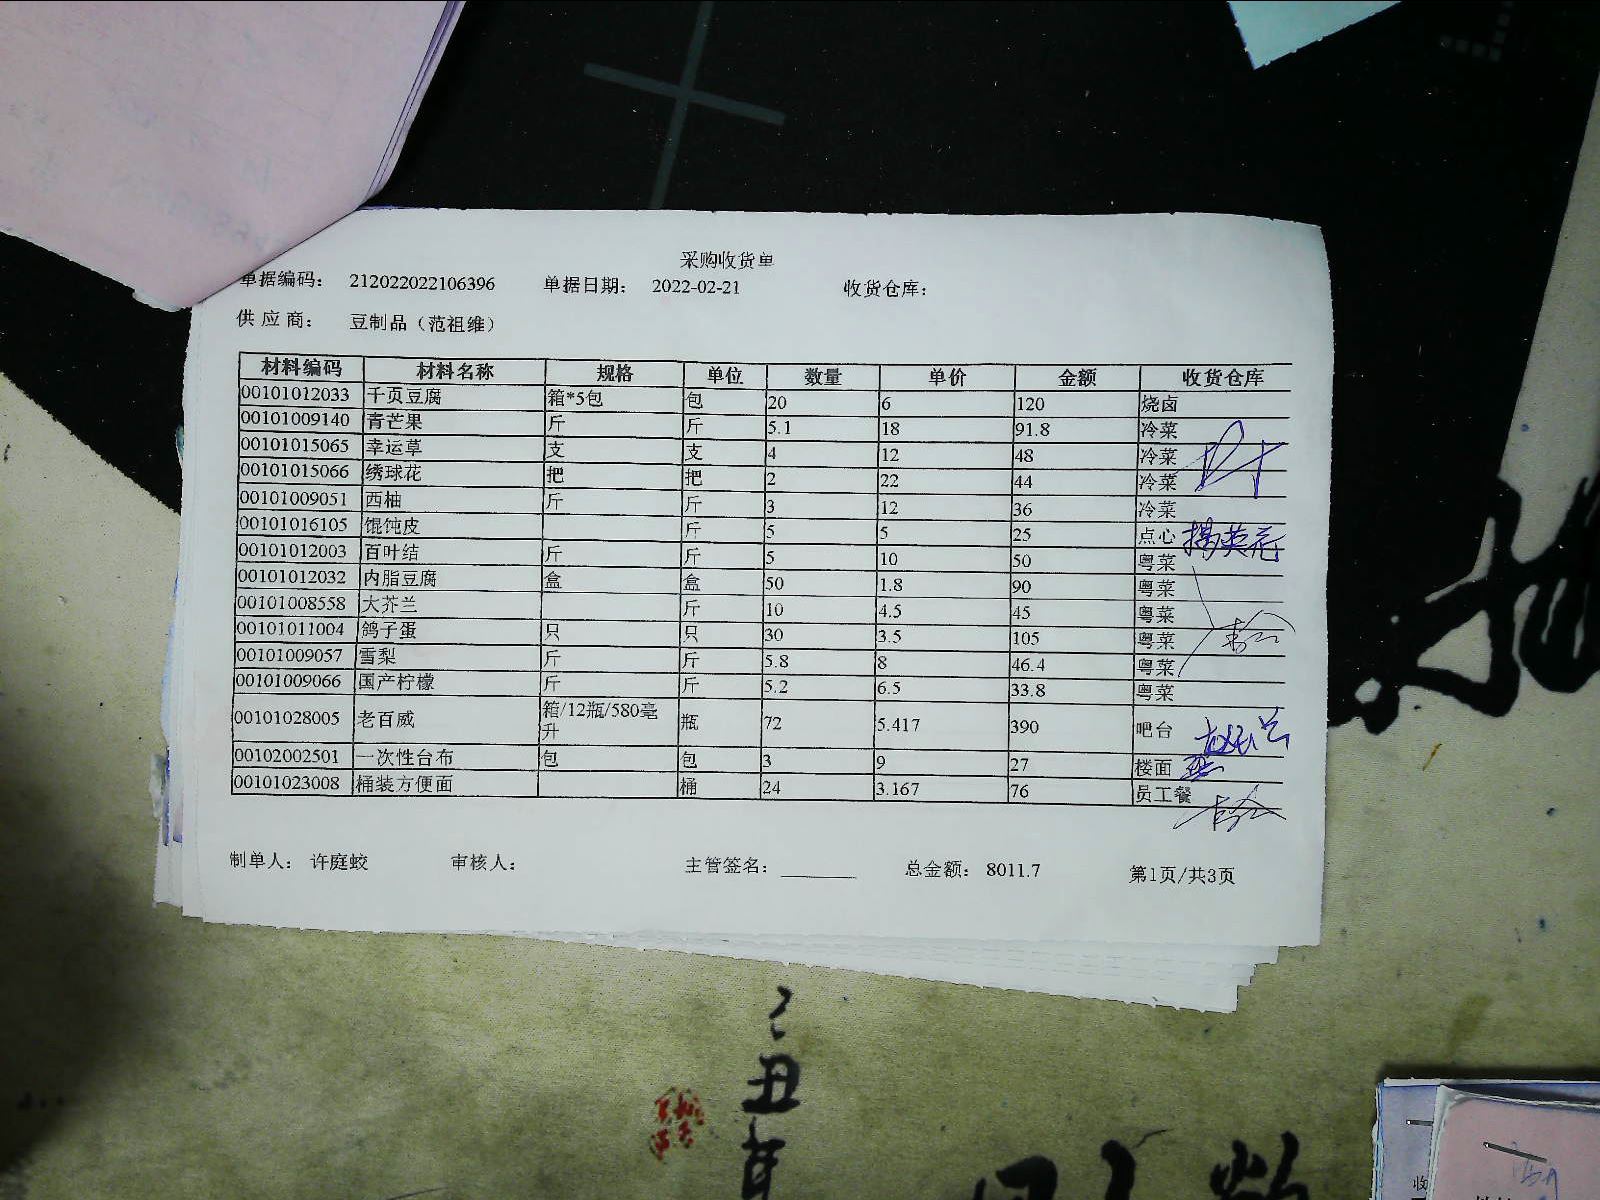 采购收货单
单据编码: 212022022106396 单据日期: 2022-02-21 收货仓库:
供应商: 豆制品（范祖维）
材料编码 材料名称 规格 单位 数量 单价 金额 收货仓库
00101012033 千页豆腐 箱*5包 包 20 6 120 烧卤
00101009140 青芒果 斤 斤 5.1 18 91.8 冷菜
00101015065 幸运草 支 支 4 12 48 冷菜
00101015066 绣球花 把 把 2 22 44 冷菜
00101009051 西柚 斤 斤 3 12 36 冷菜
00101016105 馄饨皮 斤 5 5 25 点心
00101012003 百叶结 斤 斤 5 10 50 粤菜
00101012032 内脂豆腐 盒 盒 50 1.8 90 粤菜
00101008558 大芥兰 斤 10 4.5 45 粤菜
00101011004 鸽子蛋 只 只 30 3.5 105 粤菜
00101009057 雪梨 斤 斤 5.8 8 46.4 粤菜
00101009066 国产柠檬 斤 斤 5.2 6.5 33.8 粤菜
00101028005 老百威 箱/12瓶/580毫升 瓶 72 5.417 390 吧台
00102002501 一次性台布 包 包 3 9 27 楼面
00101023008 桶装方便面 桶 24 3.167 76 员工餐
制单人: 许庭蛟 审核人: 主管签名: 总金额: 8011.7 第1页/共3页
丑